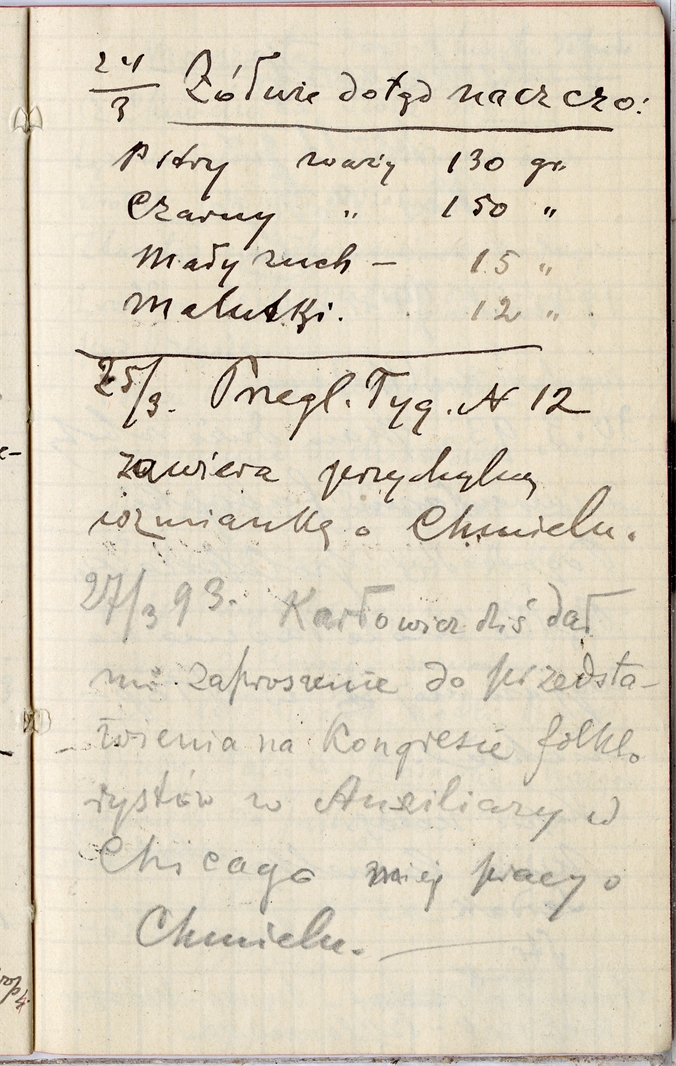 24/3 Żółwie dotąd naczczo:
waży 130 gr.
Czarny " 150 "
Mały zuch — 15 "
Malutki. 12 "
25/3. Przegl. Tyg. N 12
zawiera przychylną
wzmiankę o Chmielu.
27/3 93. Karłowicz dziś dał
mi zaproszenie do przedsta-
wienia na Kongresie folklo
rystów w Auxiliary w
Chicago mej pracy o
Chmielu. —